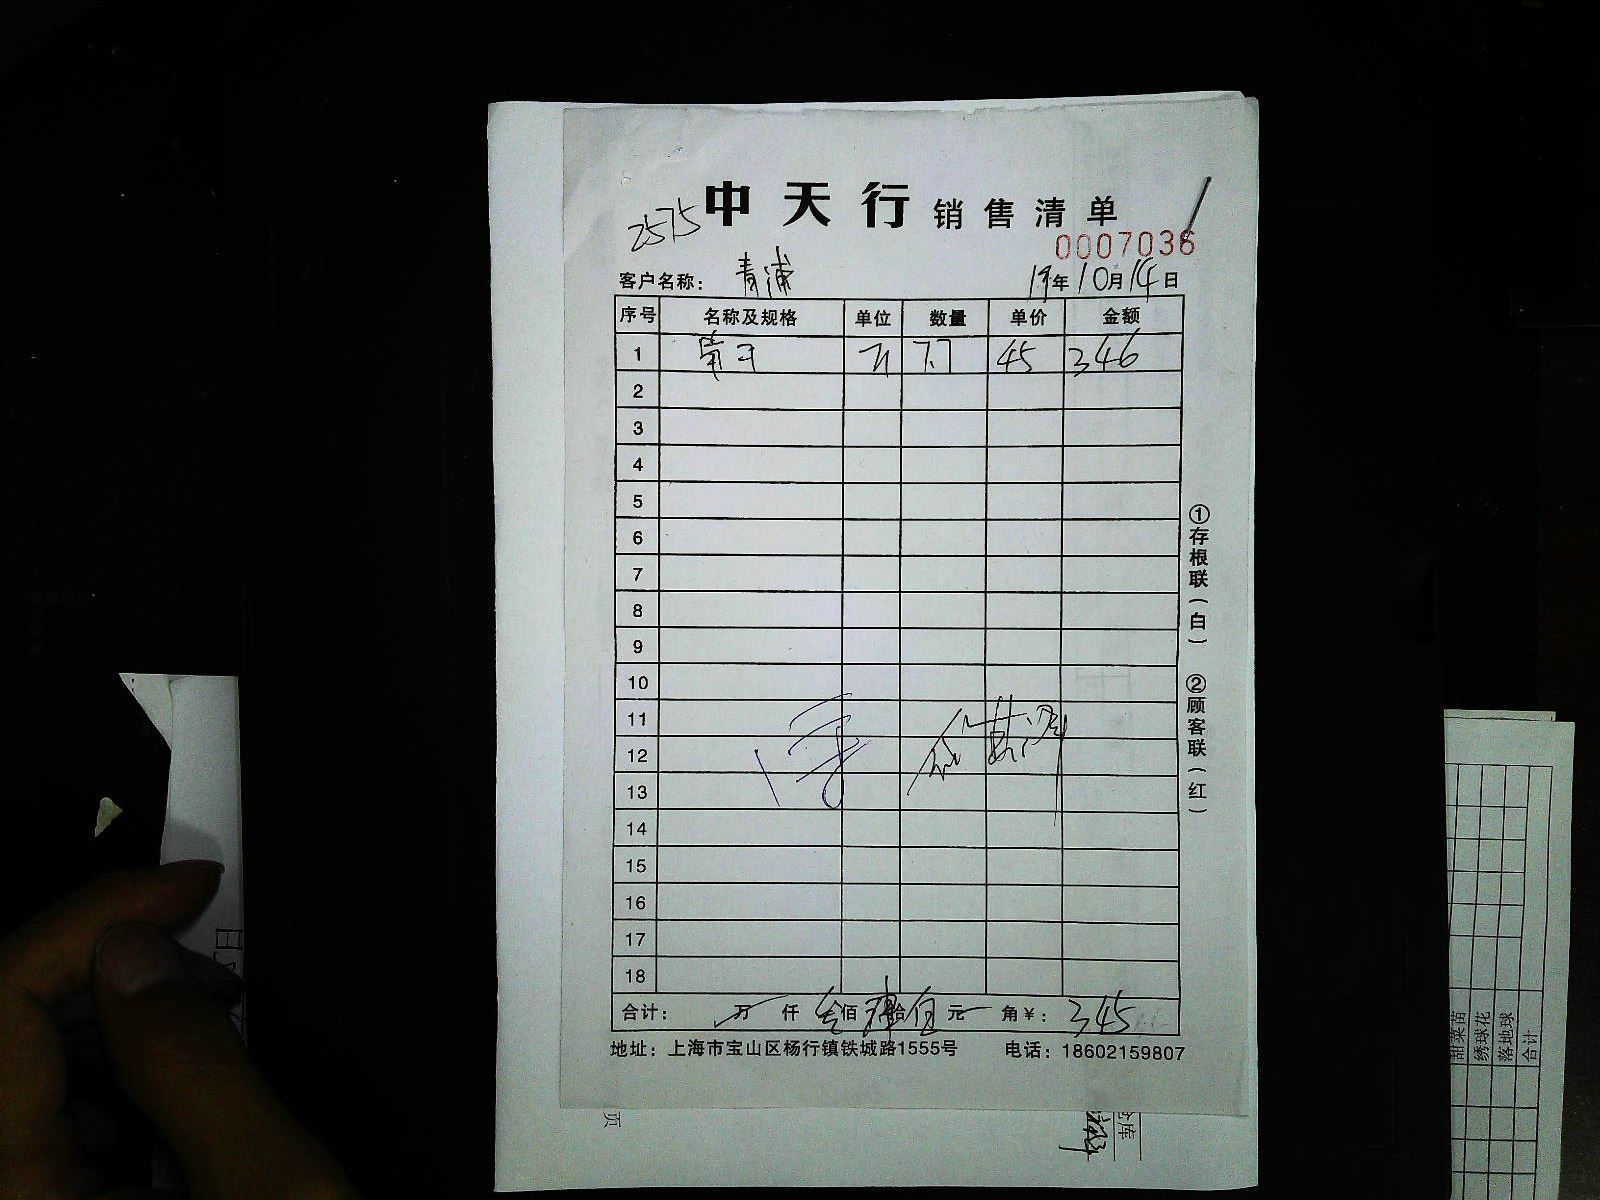 中天行 销售清单
2575
0007036
客户名称： 青浦 19年10月14日
序号 名称及规格 单位 数量 单价 金额
1 7.7 45 346
2
3
4
5
6
7
8
9
10
11
12
13
14
15
16
17
18
合计： 万 仟 叁佰 肆拾伍元 角￥： 345
地址：上海市宝山区杨行镇铁城路1555号 电话：18602159807
①存根联（白）
②顾客联（红）
页
仓库
甜菜苗
绣球花
落地球
合计